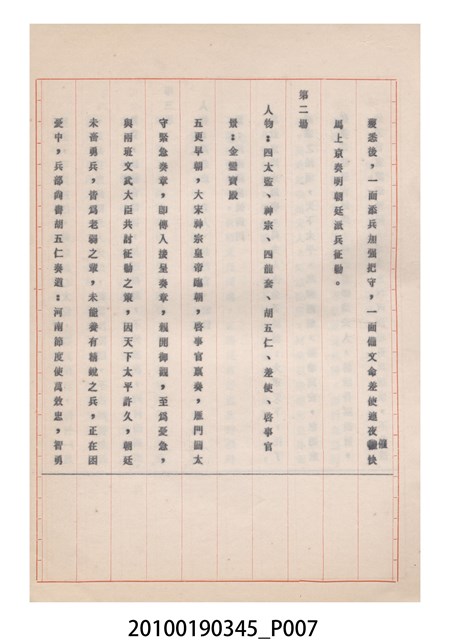 慶悉後，一面添兵加强把守，一面備文命差使連夜飛快
馬上京奏明朝廷派兵征勦。
第二場
人物：四太監、神宗、四龍套、胡五仁、差使、啓事官
景：金鑾寶殿
五更早朝，大宋神宗皇帝臨朝，啓事官禀奏，雁門關太
守緊急奏章，即傳入後呈奏章，親開御觀，至爲憂急，
與兩班文武大臣共討征勦之策，因天下太平許久，朝廷
未畜勇兵，皆爲老弱之輩，未能養有精銳之兵，正在困
憂中，兵部尚書胡五仁奏道：河南節度使萬效忠，智勇
20100190345_P007